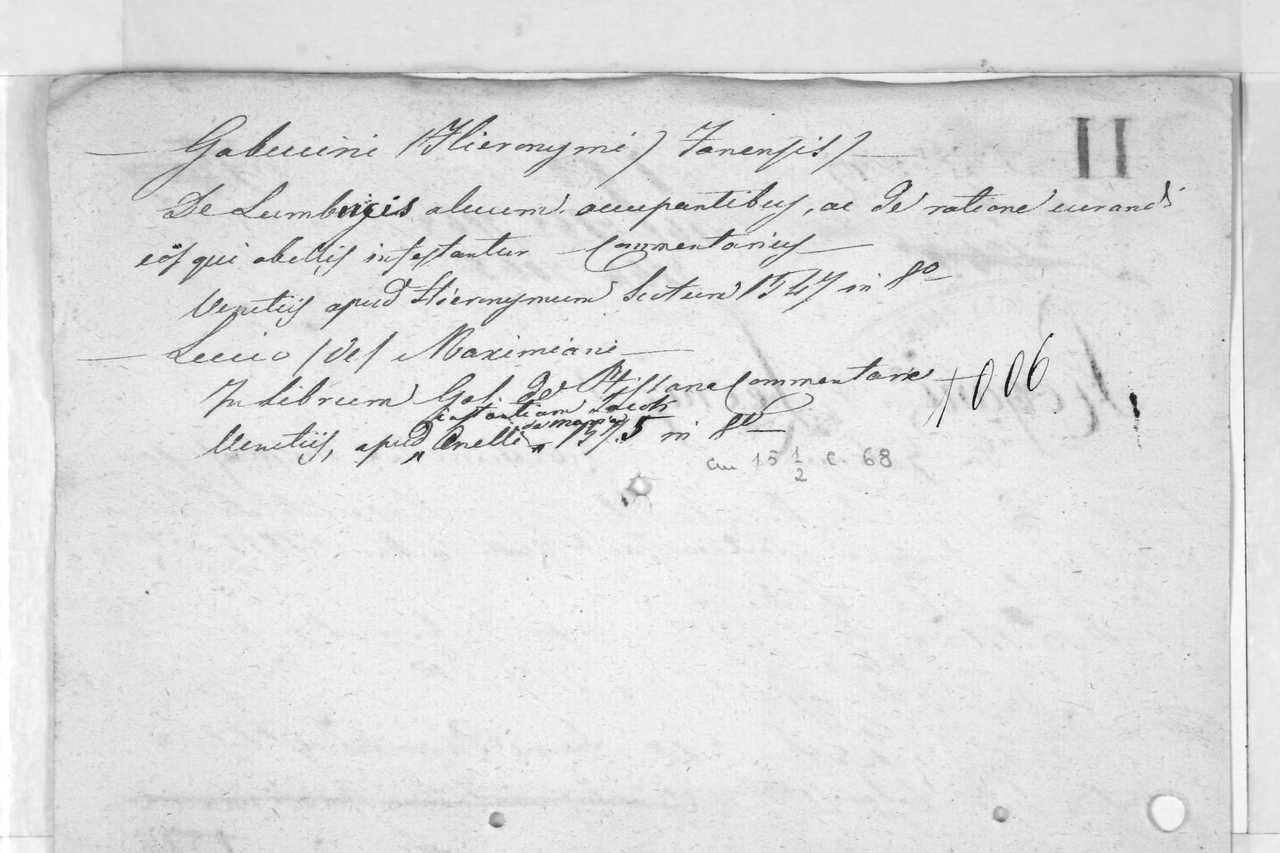 II
— Gabuccini (Hieronymi) Fanensis) —
De Lumbricis alvum occupantibus, ac de ratione curandi
eos qui ab illis infestantur Commentarius —
Venetiis apud Hieronymum Scotum 1547 in 8º
— Luccio (de) Maximiani —
In Librum Gal. de Ptissana Commentaria
instantiam Jacob
Venetiis, apud 1575 in 8º —
+ 006
c. 68